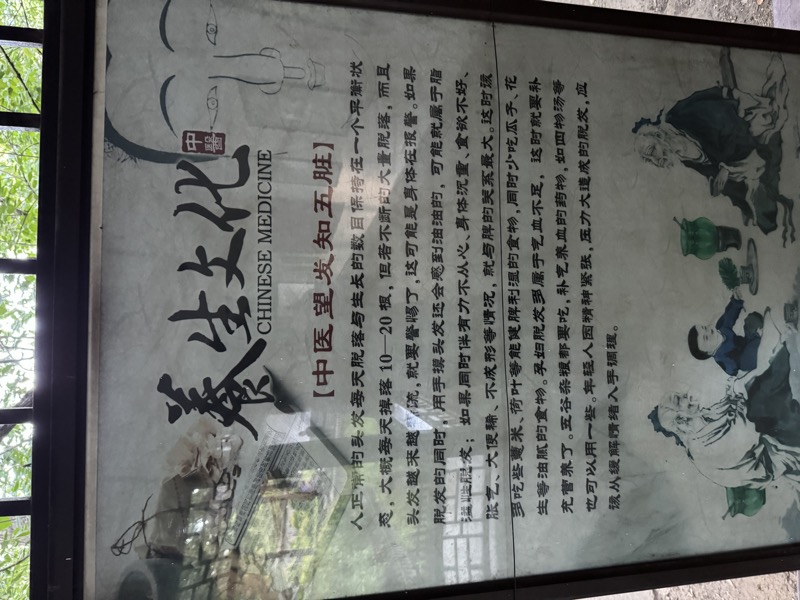 養生文化
中醫
CHINESE MEDICINE
【中医望发知五脏】
人正常的头发每天脱落与生长的数目保持在一个平衡状
态，大概每天掉落10—20根，但若不断的大量脱落，而且
头发越来越稀疏，就要警惕了，这可能是身体在报警。如果
脱发的同时，用手摸头发还会感到油油的，可能就属于脂
溢性脱发；如果同时伴有力不从心、身体沉重、食欲不好、
胀气、大便稀、不成形等情况，就与脾的关系最大。这时该
多吃些薏米、荷叶等能健脾利湿的食物，同时少吃瓜子、花
生等油腻的食物。孕妇脱发多属于气血不足，这时就要补
充营养了。五谷杂粮都要吃，补气养血的药物，如四物汤等
也可以用一些。年轻人因精神紧张，压力大造成的脱发，应
该从缓解情绪入手调理。